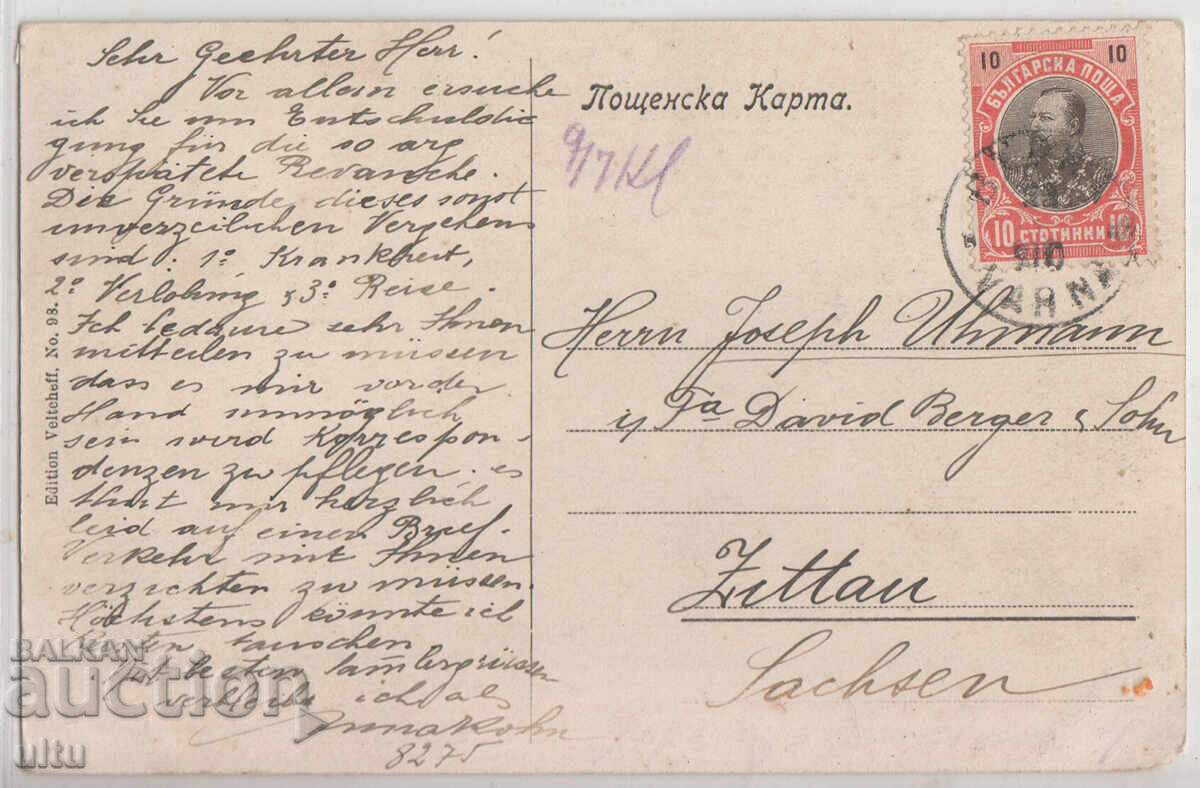 Sehr Geehrter Herr!
Vor allem ersuche
ich Sie um Entschuldi
gung für die so arg
verspätete Revanche.
Die Gründe, dieses sonst
unverzeilichen Vergehens
sind: 1º Krankheit,
2º Verlobung & 3º Reise.
Ich bedaure sehr Ihnen
mitteilen zu müssen
dass es mir vorder
Hand unmöglich
sein wird Korrespon-
denzen zu pflegen. es
thut mir herzlich
leid auf einen Brief-
Verkehr mit Ihnen
verzichten zu müssen.
Höchstens könnte ich
Karten tauschen
Mit besten
verbleibe ich als
Anna Kohn
8275
Edition Veltcheff, No. 98.
Пощенска Карта.
9/7 Kl
10 10
БЪЛГАРСКА ПОЩА
10 СТОТИНКИ 10
VARNA
Herrn Joseph Uhmann
Fa David Berger & Sohn
Zittau
Sachsen
BALKAN
auction
ultu